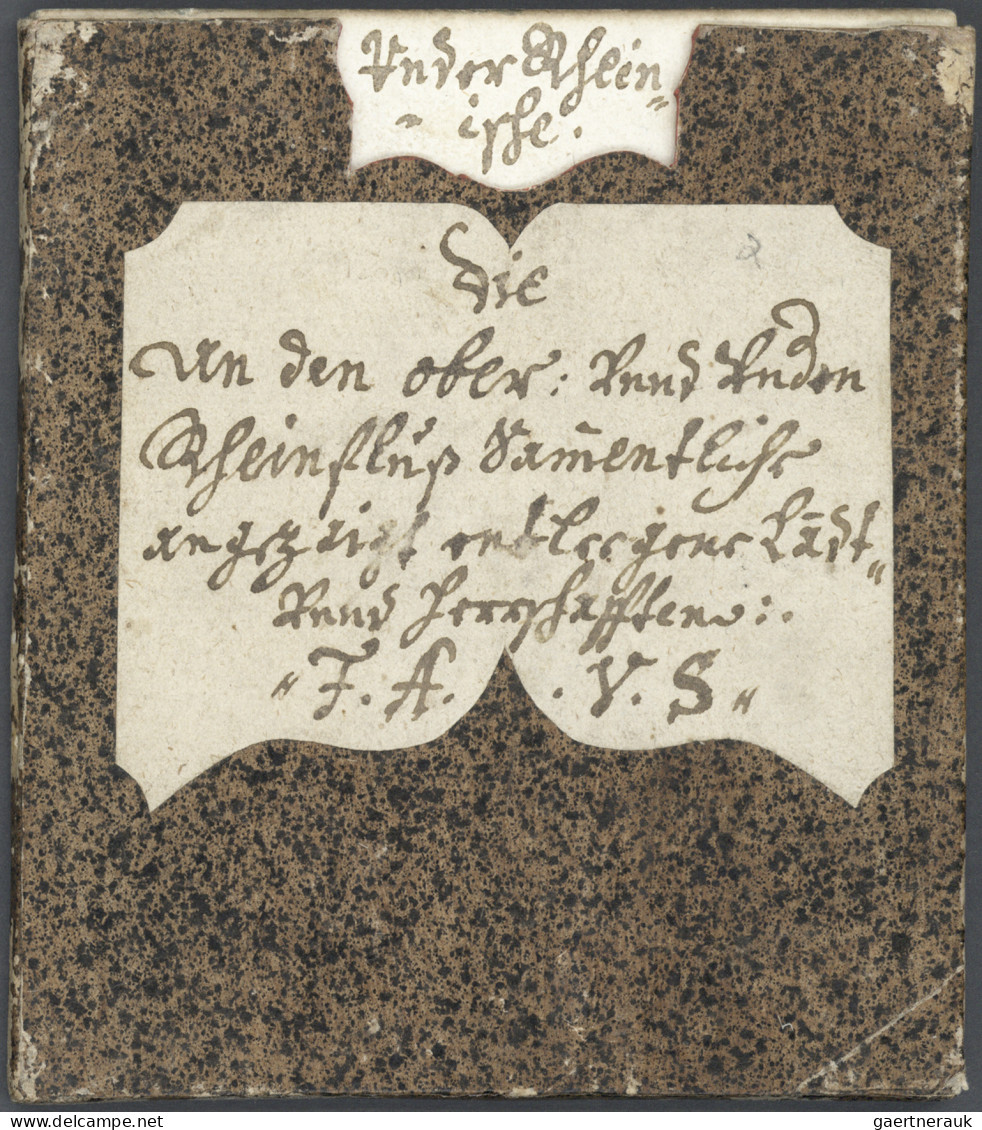 Vnder Rhein„
„ ische.
Die
An den ober: Vnnd Vndern
Rheinfluß Sam̄entliche
angezeigt entleegene Länd„
Vnnd Herrschafften:.
„ F. A. . V. S „
gaertnerauk